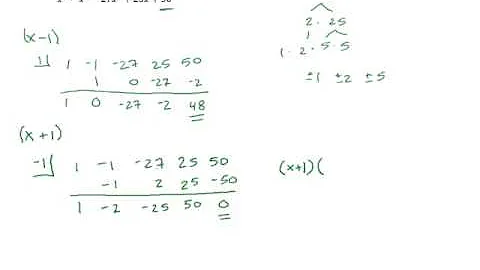 (x-1)
1| 1 -1 -27 25 50
1 0 -27 -2
1 0 -27 -2 48
(x+1)
-1| 1 -1 -27 25 50
-1 2 25 -50
1 -2 -25 50 0
2 · 25
1 · 2 · 5 · 5
±1 ±2 ±5
(x+1)(